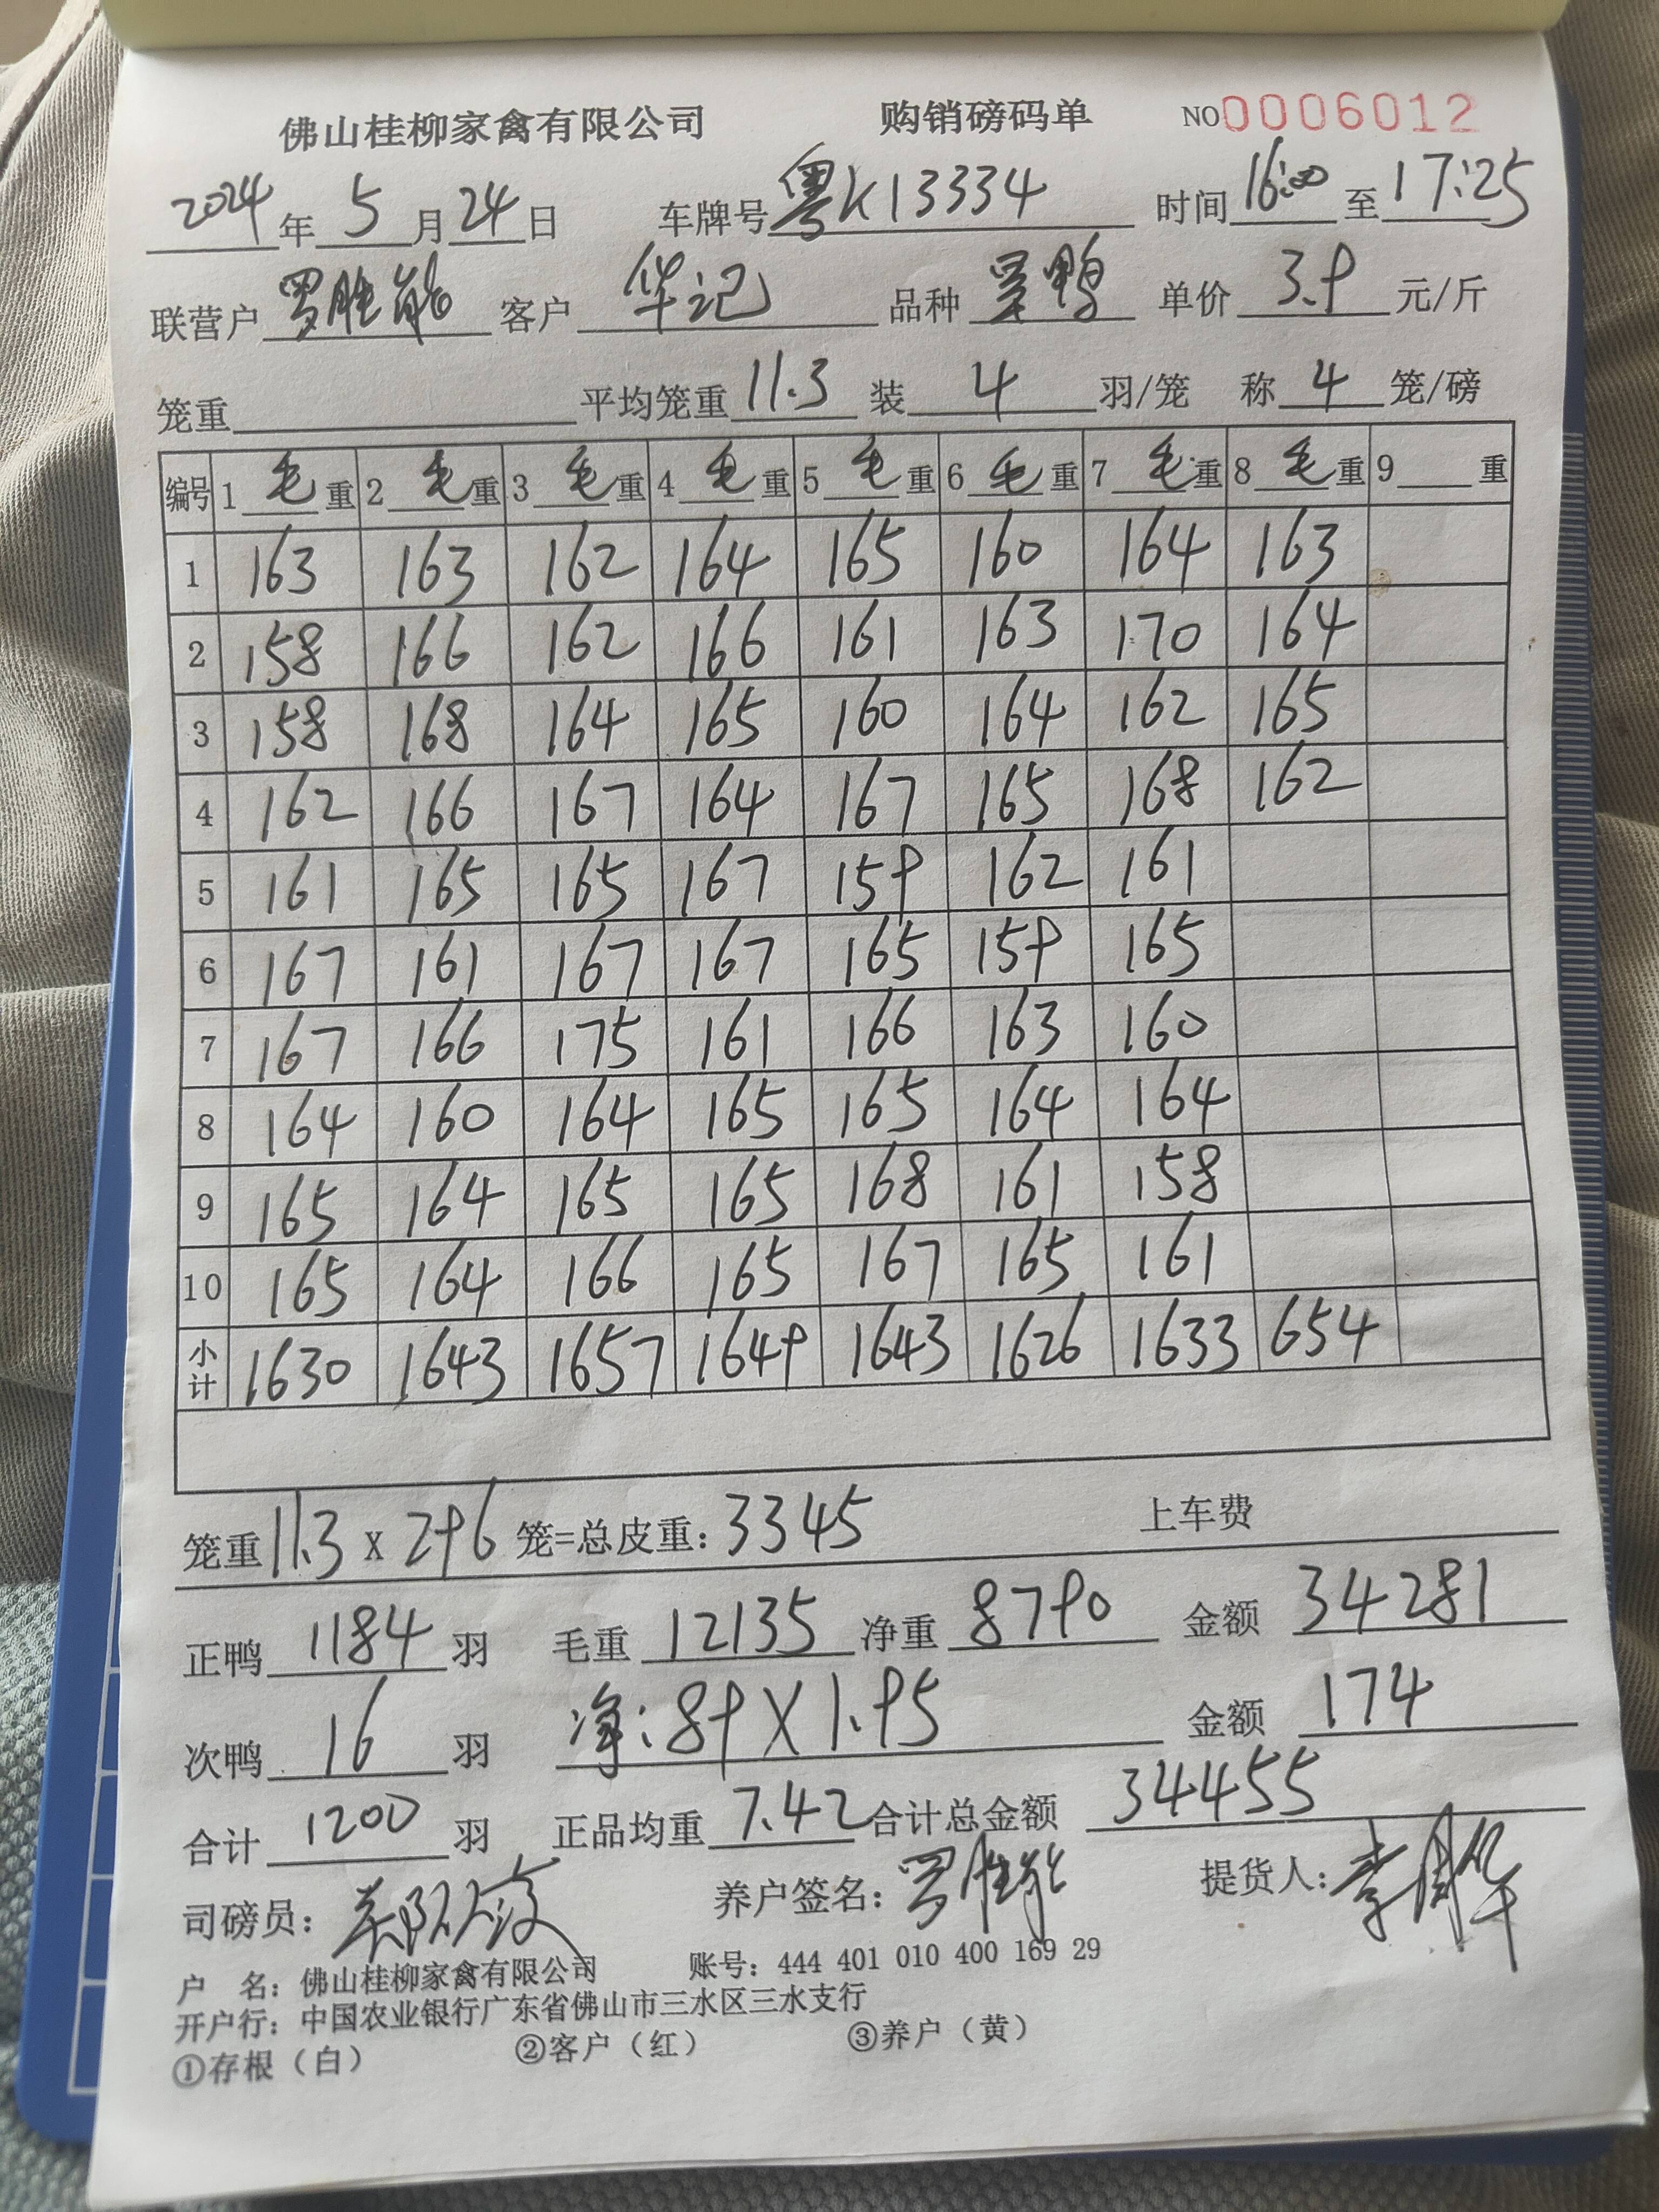 佛山桂柳家禽有限公司 购销磅码单 NO0006012
2024年5月24日 车牌号粤K13334 时间16:00至17:25
联营户罗胜能 客户华记 品种 鸭 单价3.9元/斤
笼重 平均笼重11.3 装4羽/笼 称4笼/磅
编号 1毛重 2毛重 3毛重 4毛重 5毛重 6毛重 7毛重 8毛重 9 重
1 163 163 162 164 165 160 164 163
2 158 166 162 166 161 163 170 164
3 158 168 164 165 160 164 162 165
4 162 166 167 164 167 165 168 162
5 161 165 165 167 159 162 161
6 167 161 167 167 165 159 165
7 167 166 175 161 166 163 160
8 164 160 164 165 165 164 164
9 165 164 165 165 168 161 158
10 165 164 166 165 167 165 161
小计 1630 1643 1657 1649 1643 1626 1633 654
笼重11.3x296笼=总皮重:3345 上车费
正鸭1184羽 毛重12135 净重8790 金额34281
次鸭16羽 净:89X1.95 金额174
合计1200羽 正品均重7.42 合计总金额34455
司磅员: 养户签名:罗胜能 提货人:
户 名:佛山桂柳家禽有限公司 账号:444 401 010 400 169 29
开户行:中国农业银行广东省佛山市三水区三水支行
①存根(白) ②客户(红) ③养户(黄)